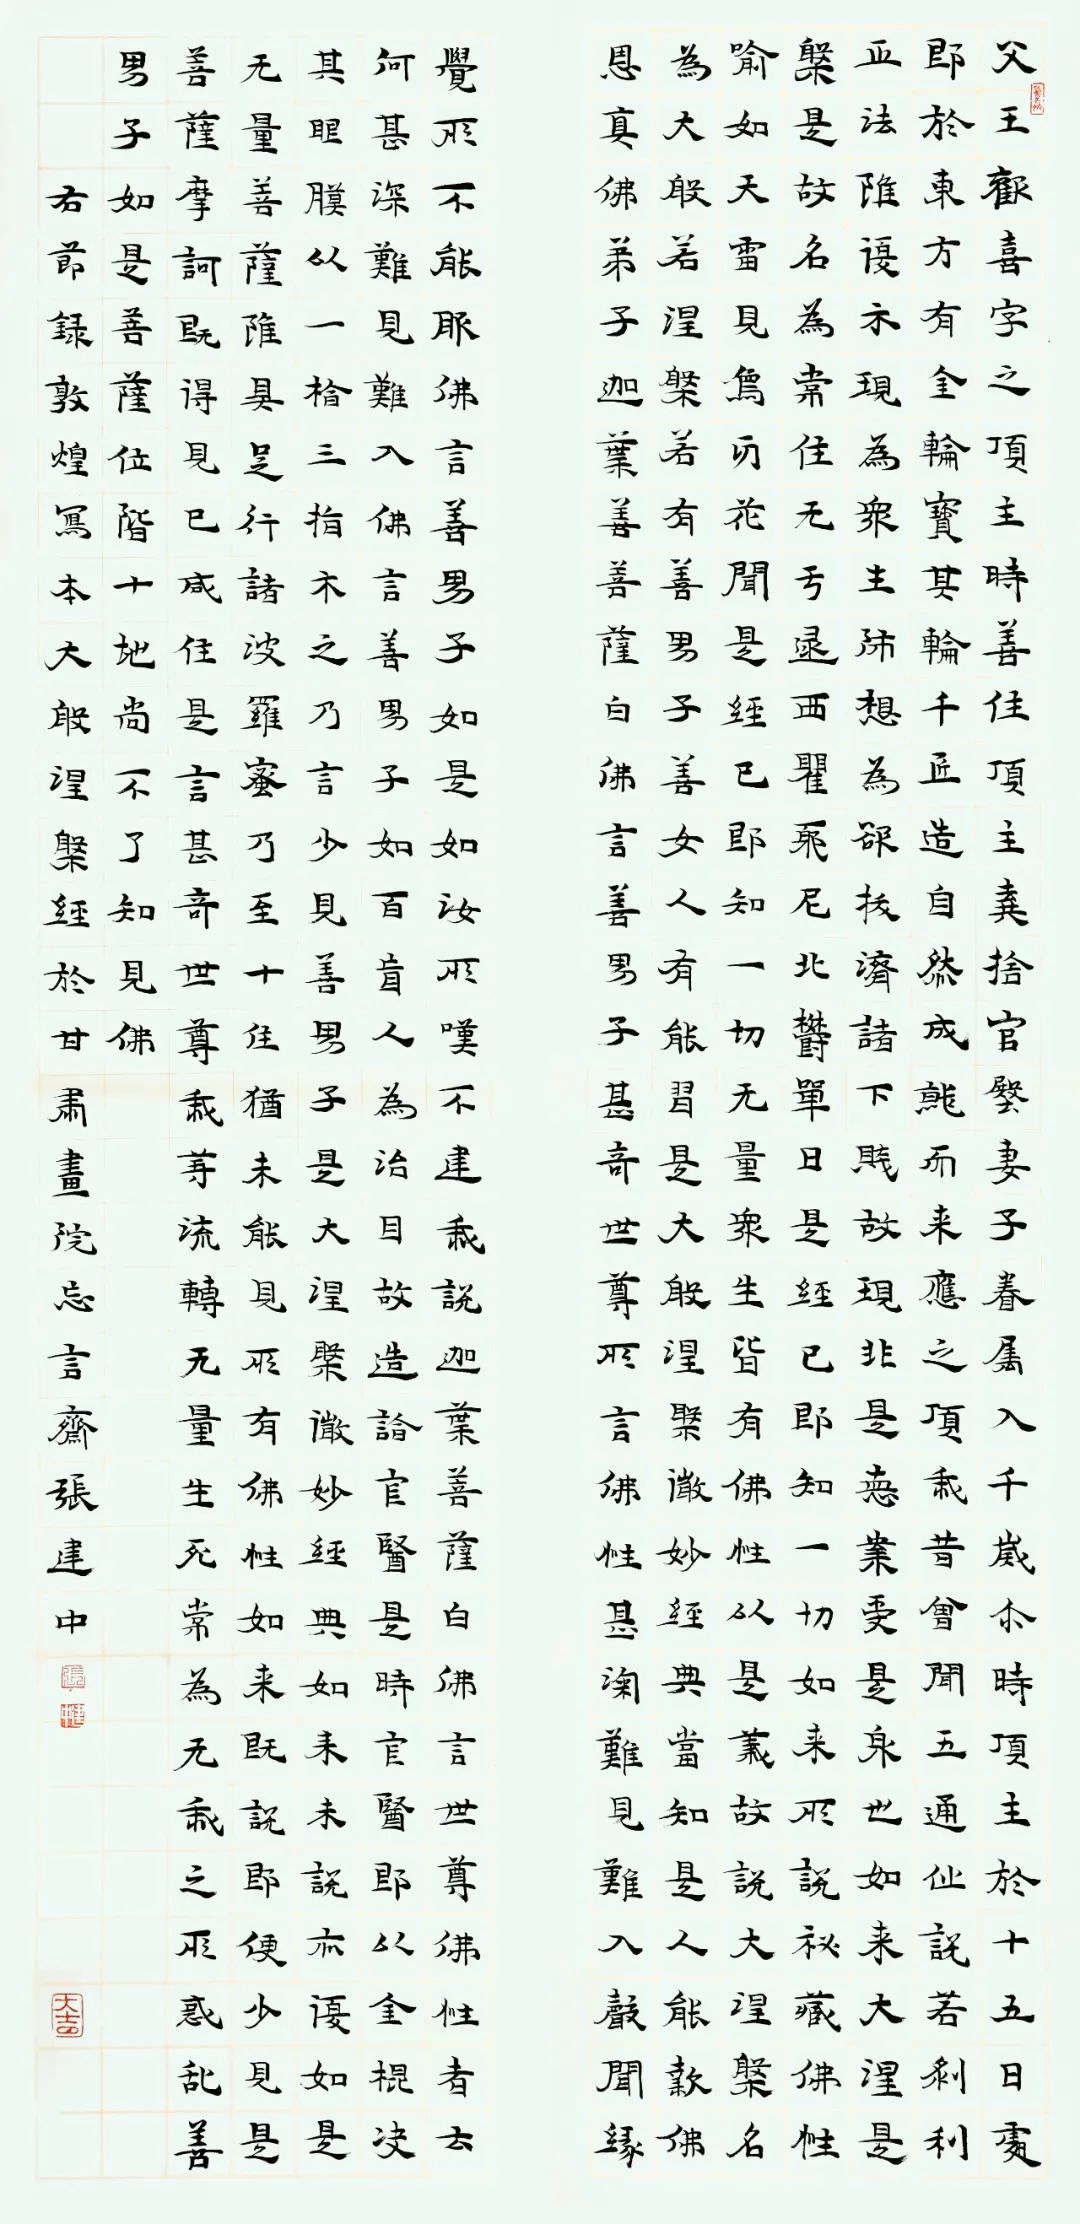 父王歡喜字之頂主時善住頂主棄捨官殿妻子眷屬入千歲尒時頂主於十五日處
即於東方有金輪寶其輪千匠造自然成就而来應之頂我昔曾聞五通仙說若剎利
正法雖復示現為衆生師想為欲拔濟諸下賤故現非是惡業受是身也如来大涅是
槃是故名為常住无亏逮西瞿耶尼北欝單日是經已即知一切如来所說秘藏佛性
喻如天雷見象牙花聞是經已即知一切无量衆生皆有佛性以是義故說大涅槃名
為大般若涅槃若有善男子善女人有能習是大般涅槃微妙經典當知是人能歎佛
恩真佛弟子迦葉善善薩白佛言善男子甚奇世尊所言佛性甚深難見難入聲聞緣
覺所不能服佛言善男子如是如汝所嘆不違我說迦葉善薩白佛言世尊佛性者云
何甚深難見難入佛言善男子如百盲人為治目故造詣官醫是時官醫即以金棍决
其眼膜以一榰三指示之乃言少見善男子是大涅槃微妙經典如来未說亦復如是
无量善薩雖具足行諸波羅蜜乃至十住猶未能見所有佛性如来既說即便少見是
善薩摩訶既得見已咸住是言甚奇世尊我等流轉无量生死常為无我之所惑乱善
男子如是善薩位階十地尚不了知見佛
右節録敦煌寫本大般涅槃經於甘肅畫院忘言齋張建中